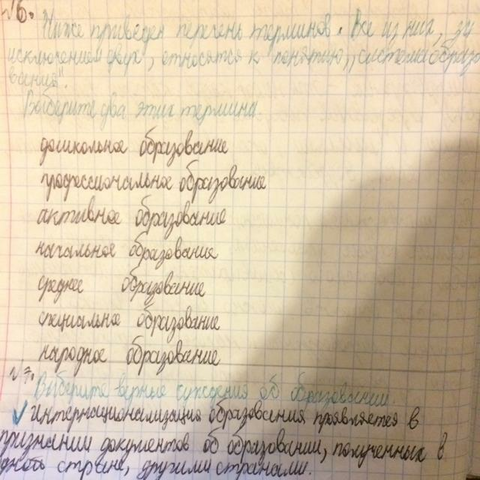 №6.
Ниже приведен перечень терминов. Все из них, за
исключением двух, относятся к понятию ,,система образо
вания".
Выберите два этих термина.
дошкольное образование
профессиональное образование
активное образование
начальное образование
среднее образование
специальное образование
народное образование
№7. Выберите верные суждения об образовании.
✓ интернационализация образования проявляется в
признании документов об образовании, полученных в
одной стране, другими странами.